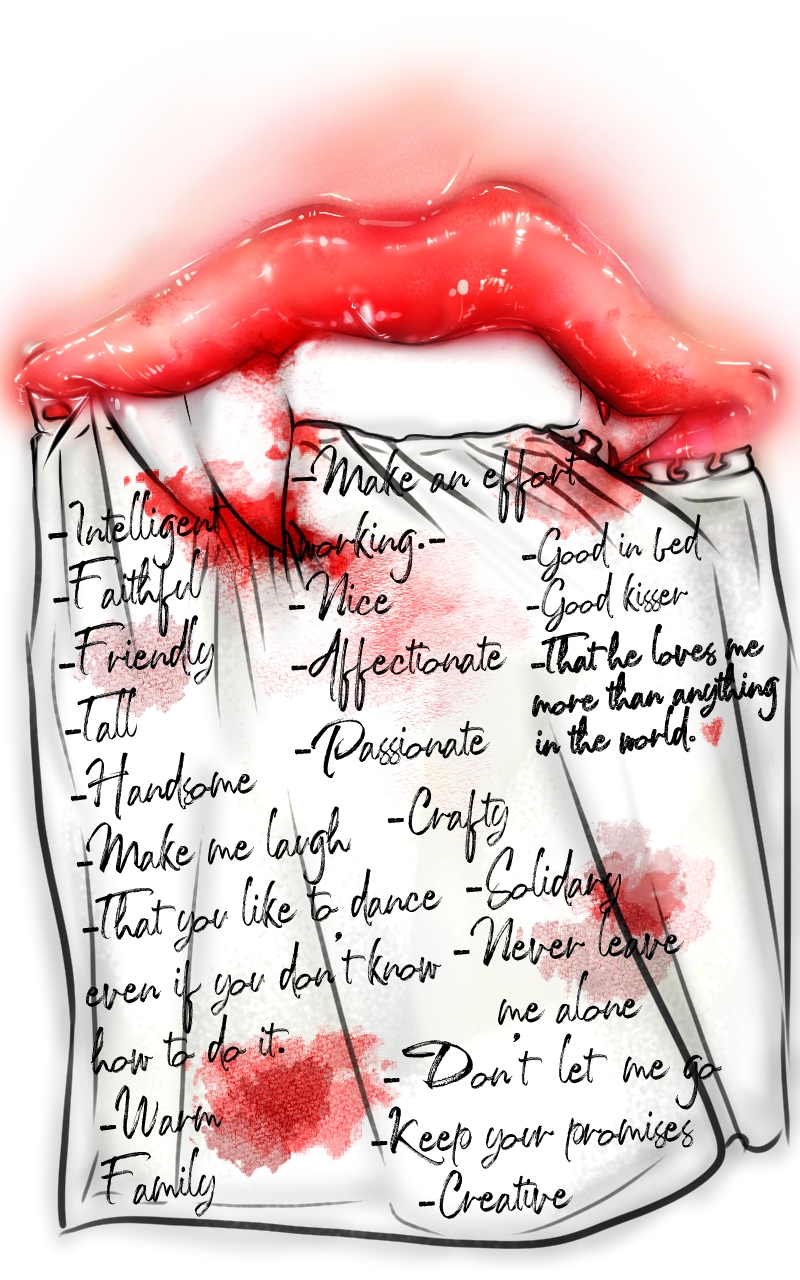 -Intelligent
-Faithful
-Friendly
-Tall
-Handsome
-Make me laugh
-That you like to dance
even if you don't know
how to do it.
-Warm
Family
-Make an effort
working.-
-Nice
-Affectionate
-Passionate
-Crafty
-Solidary
-Never leave
me alone
-Don't let me go
-Keep your promises
-Creative
-Good in bed
-Good kisser
-That he loves me
more than anything
in the world.